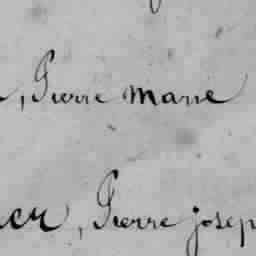 , Pierre Marie
, Pierre Josep